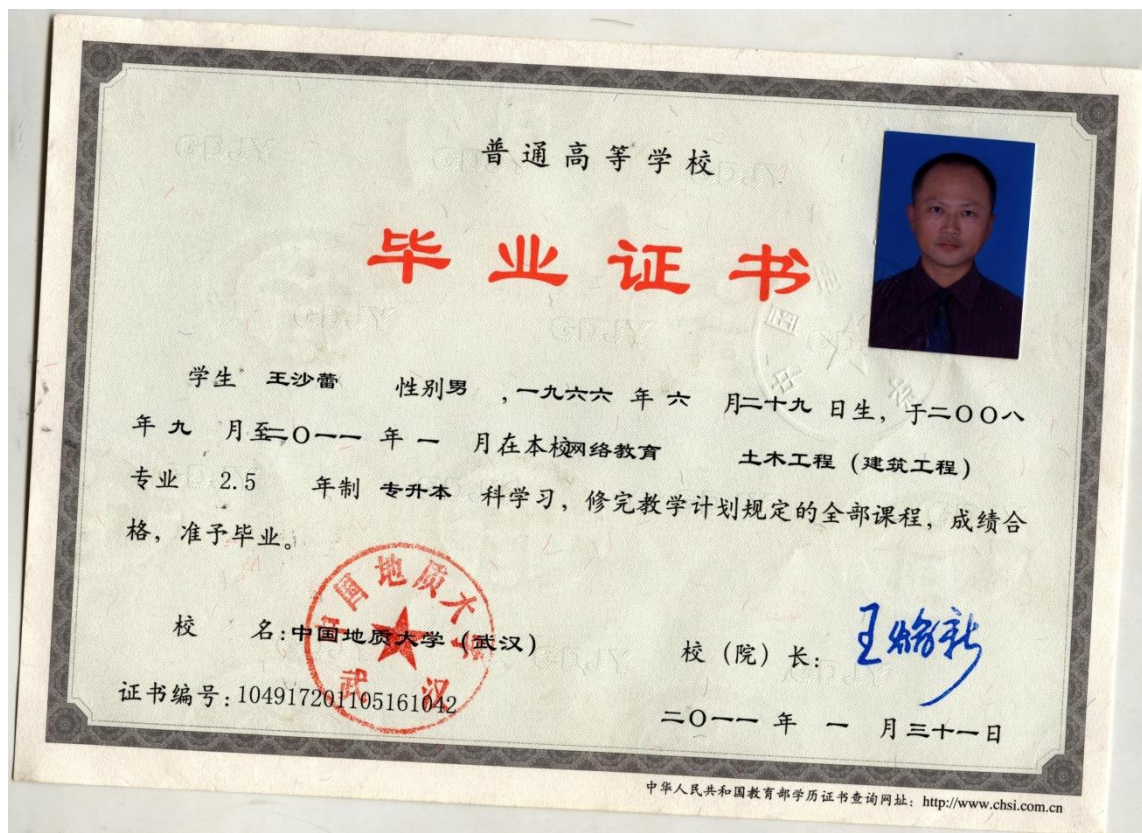 普通高等学校
毕业证书
学生 王沙蕾 性别男 ,一九六六 年 六 月二十九 日生，于二〇〇八
年 九 月至二〇一一 年 一 月在本校网络教育 土木工程（建筑工程）
专业 2.5 年制 专升本 科学习，修完教学计划规定的全部课程，成绩合
格，准予毕业。
中国地质大学
武汉
校 名:中国地质大学（武汉）
校（院）长:
王焰新
证书编号:104917201105161042
二〇一一 年 一 月三十一日
中华人民共和国教育部学历证书查询网址: http://www.chsi.com.cn